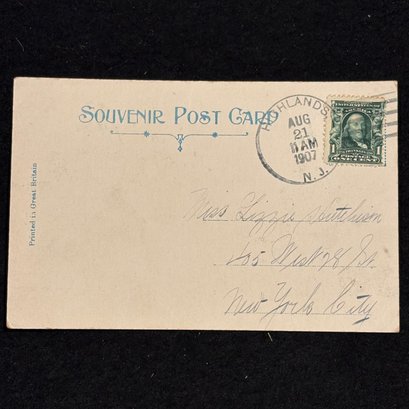 SOUVENIR POST CARD
HIGHLANDS
AUG
21
11 AM
1907
N.J.
1 1
ONE CENT
Printed in Great Britain
Miss Lizzie Hutchison
405 West 28 St.
New York City